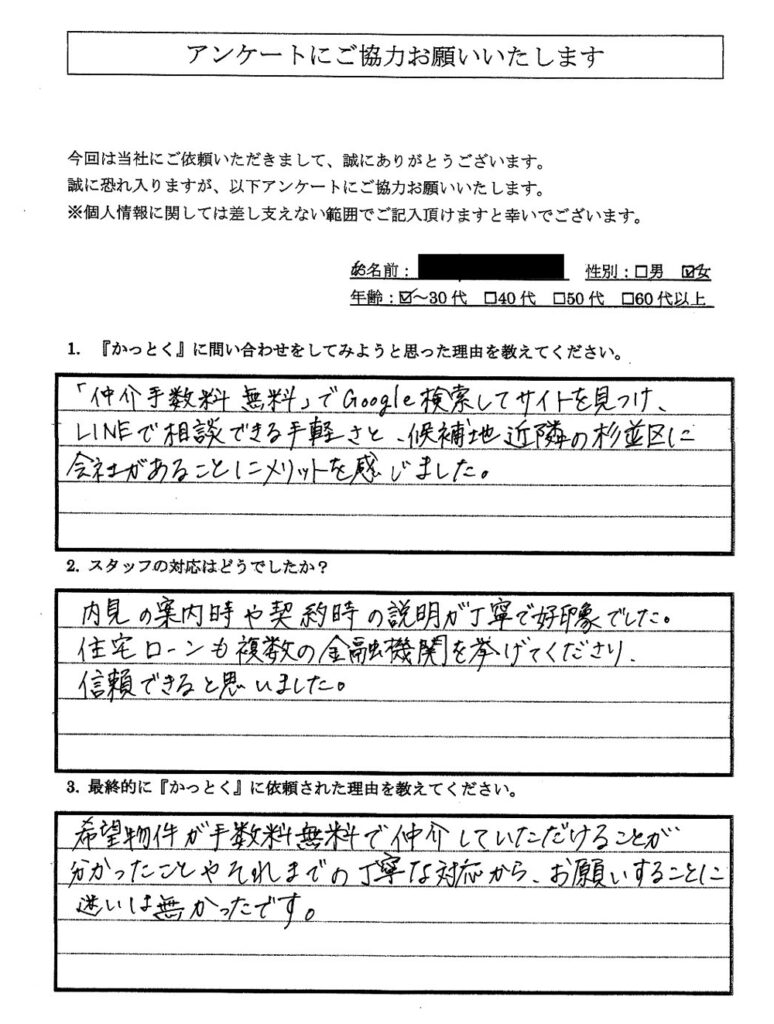 アンケートにご協力お願いいたします
今回は当社にご依頼いただきまして、誠にありがとうございます。
誠に恐れ入りますが、以下アンケートにご協力お願いいたします。
※個人情報に関しては差し支えない範囲でご記入頂けますと幸いでございます。
お名前： 性別：□男 ☑女
年齢：☑～30代 □40代 □50代 □60代以上
1. 『かっとく』に問い合わせをしてみようと思った理由を教えてください。
「仲介手数料無料」でGoogle検索してサイトを見つけ、
LINEで相談できる手軽さと、候補地近隣の杉並区に
会社があることにメリットを感じました。
2. スタッフの対応はどうでしたか？
内見の案内時や契約時の説明が丁寧で好印象でした。
住宅ローンも複数の金融機関を挙げてくださり、
信頼できると思いました。
3. 最終的に『かっとく』に依頼された理由を教えてください。
希望物件が手数料無料で仲介していただけることが
分かったことやそれまでの丁寧な対応から、お願いすることに
迷いは無かったです。